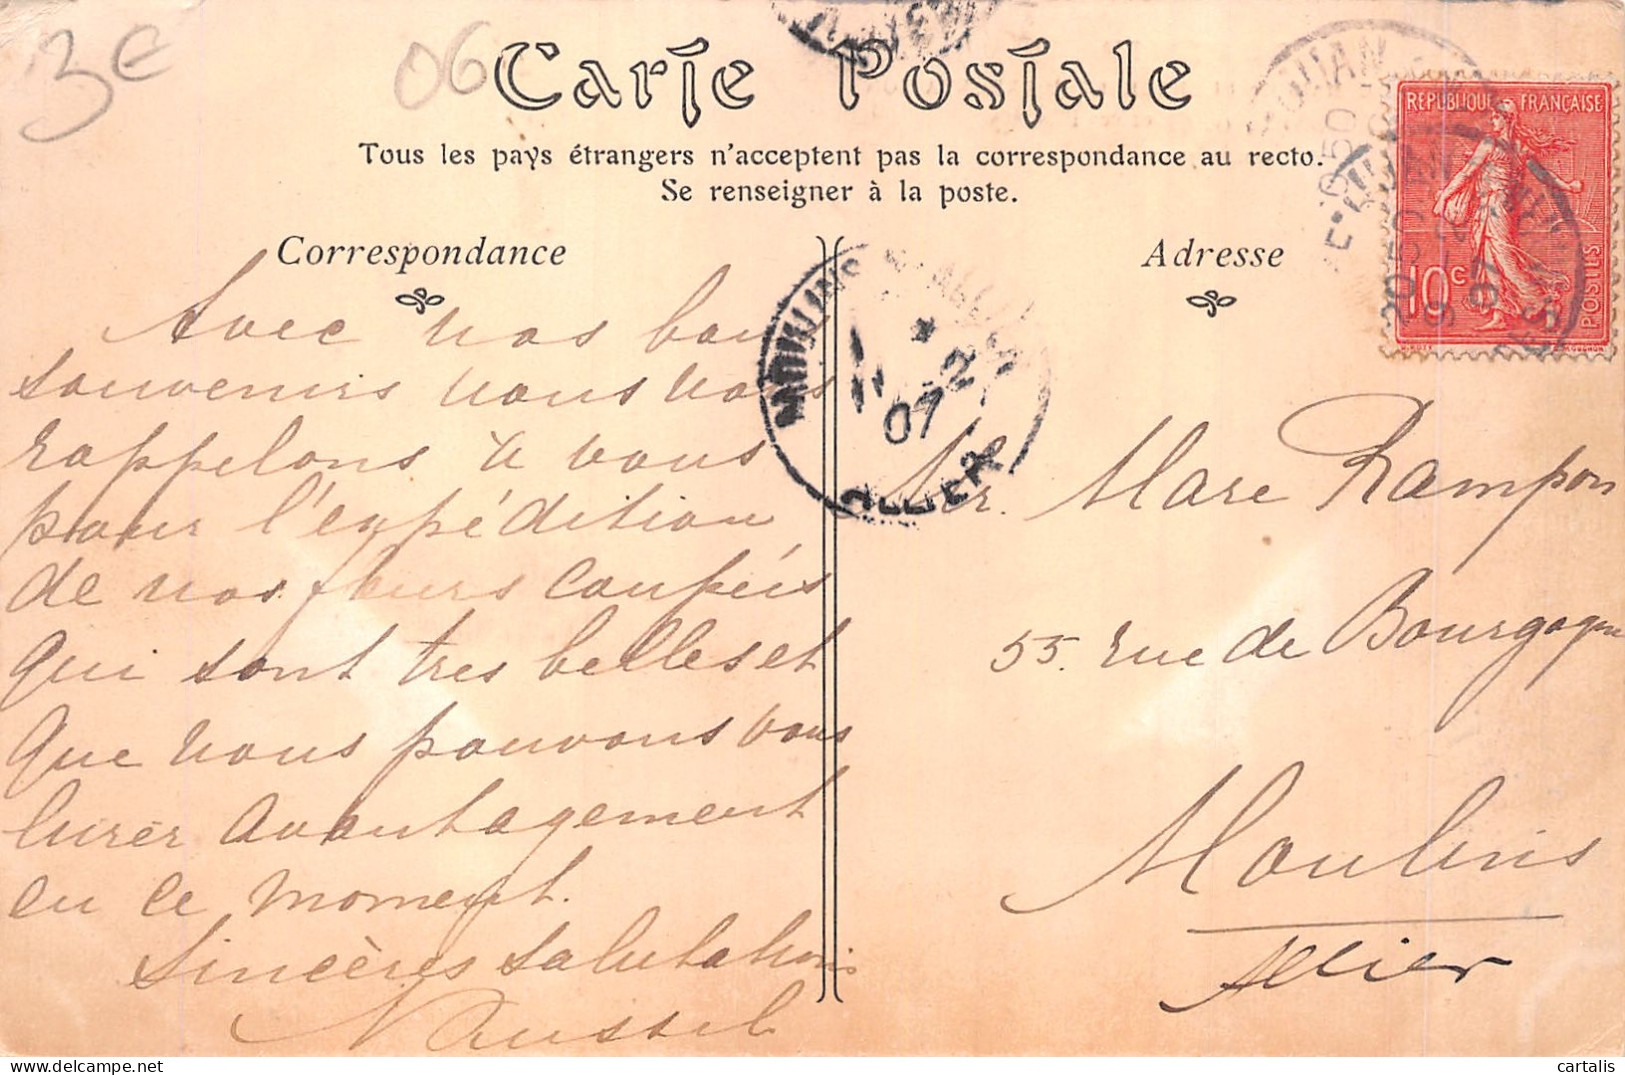 3€
06
Carte Postale
Tous les pays étrangers n'acceptent pas la correspondance au recto.
Se renseigner à la poste.
Correspondance
Avec nos bons
souvenirs nous nous
rappelons à vous
pour l'expédition
de nos fleurs coupées
qui sont très belles et
que nous pouvons vous
livrer avantagement
en ce moment.
Sincères salutations
Adresse
Mr. Marc Rampon
55. rue de Bourgogne
Moulins
Allier
RÉPUBLIQUE FRANÇAISE
10 c
POSTES
MOULINS S/ ALLIER
11 - 2
07
ALLIER
cartalis